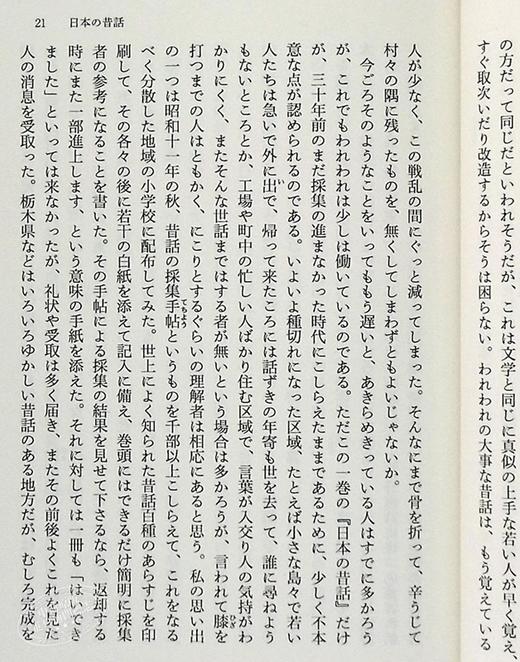 の方だって同じだといわれそうだが、これは文学と同じに真似の上手な若い人が早く覚え、
すぐ取次いだり改造するからそうは困らない。われわれの大事な昔話は、もう覚えている
21 日本の昔話
人が少なく、この戦乱の間にぐっと減ってしまった。そんなにまで骨を折って、辛うじて
村々の隅に残ったものを、無くしてしまわずともよいじゃないか。
今ごろそのようなことをいってももう遅いと、あきらめきっている人はすでに多かろう
が、これでもわれわれは少しは働いているのである。ただこの一巻の『日本の昔話』だけ
が、三十年前のまだ採集の進まなかった時代にこしらえたままであるために、少しく不本
意な点が認められるのである。いよいよ種切れになった区域、たとえば小さな島々で若い
人たちは急いで外に出で、帰って来たころには話ずきの年寄も世を去って、誰に尋ねよう
もないところとか、工場や町中の忙しい人ばかり住む区域で、言葉が人交り人の気持がわ
かりにくく、またそんな世話まではする者が無いという場合は多かろうが、言われて膝を
打つまでの人はともかく、にこりとするぐらいの理解者は相応にあると思う。私の思い出
の一つは昭和十一年の秋、昔話の採集手帖というものを千部以上こしらえて、これをなる
べく分散した地域の小学校に配布してみた。世上によく知られた昔話百種のあらすじを印
刷して、その各々の後に若干の白紙を添えて記入に備え、巻頭にはできるだけ簡明に採集
者の参考になることを書いた。その手帖による採集の結果を見せて下さるなら、返却する
時にまた一部進上します、という意味の手紙を添えた。それに対しては一冊も「はいでき
ました」といっては来なかったが、礼状や受取は多く届き、またその前後よくこれを見た
人の消息を受取った。栃木県などはいろいろゆかしい昔話のある地方だが、むしろ完成を